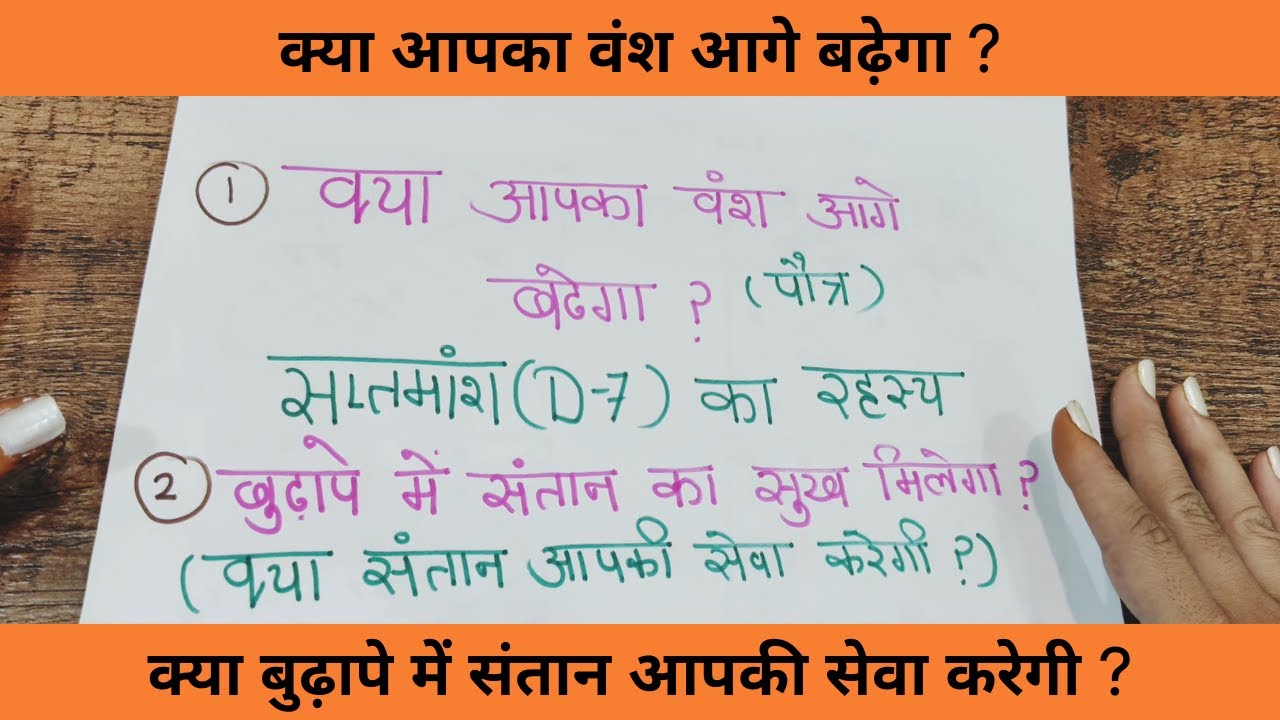 क्या आपका वंश आगे बढ़ेगा ?
① क्या आपका वंश आगे
बढेगा ? (पौत्र)
सप्तमांश (D-7) का रहस्य
② बुढ़ापे में संतान का सुख मिलेगा ?
(क्या संतान आपकी सेवा करेगी ?)
क्या बुढ़ापे में संतान आपकी सेवा करेगी ?